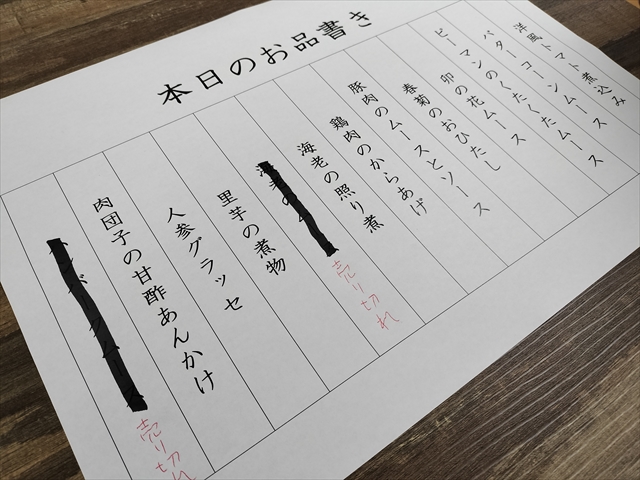 本日のお品書き
洋風トマト煮込み
バターコーンムース
ピーマンのくたくたムース
卯の花ムース
春菊のおひたし
豚肉のムースとソース
鶏肉のからあげ
海老の照り煮
売り切れ
里芋の煮物
人参グラッセ
肉団子の甘酢あんかけ
売り切れ